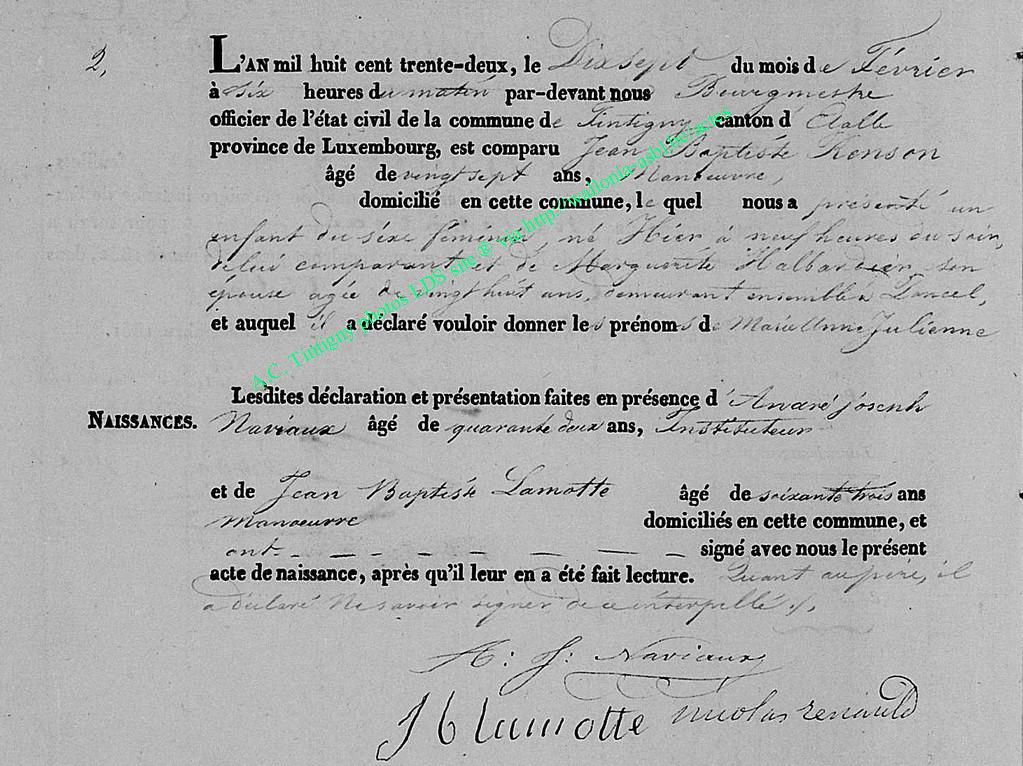 2,
L'AN mil huit cent trente-deux, le Dix sept du mois de Février
à six heures du matin par-devant nous Bourgmestre
officier de l'état civil de la commune de Tintigny canton d'Etalle
province de Luxembourg, est comparu Jean Baptiste Renson
âgé de vingt sept ans, Manoeuvre,
domicilié en cette commune, le quel nous a présenté un
enfant du séxe féminin, né Hier à neuf heures du soir,
de lui comparant et de Marguerite Halbardier son
épouse agée de vingt huit ans, demeurant ensemble à Poncel,
et auquel il a déclaré vouloir donner les prénoms de Marie Anne Julienne
Lesdites déclaration et présentation faites en présence d'André joseph
NAISSANCES. Naviaux âgé de quarante deux ans, Instituteur
et de Jean Baptiste Lamotte âgé de soixante trois ans
manoeuvre domiciliés en cette commune, et
ont signé avec nous le présent
acte de naissance, après qu'il leur en a été fait lecture. Quant au père, il
a déclaré ne savoir signer de ce interpellé
A: J: Naviaux
J b lamotte nicolas renauld
A.C. Tintigny photos LDS site ® via http://wallonia-asbl.be/actes